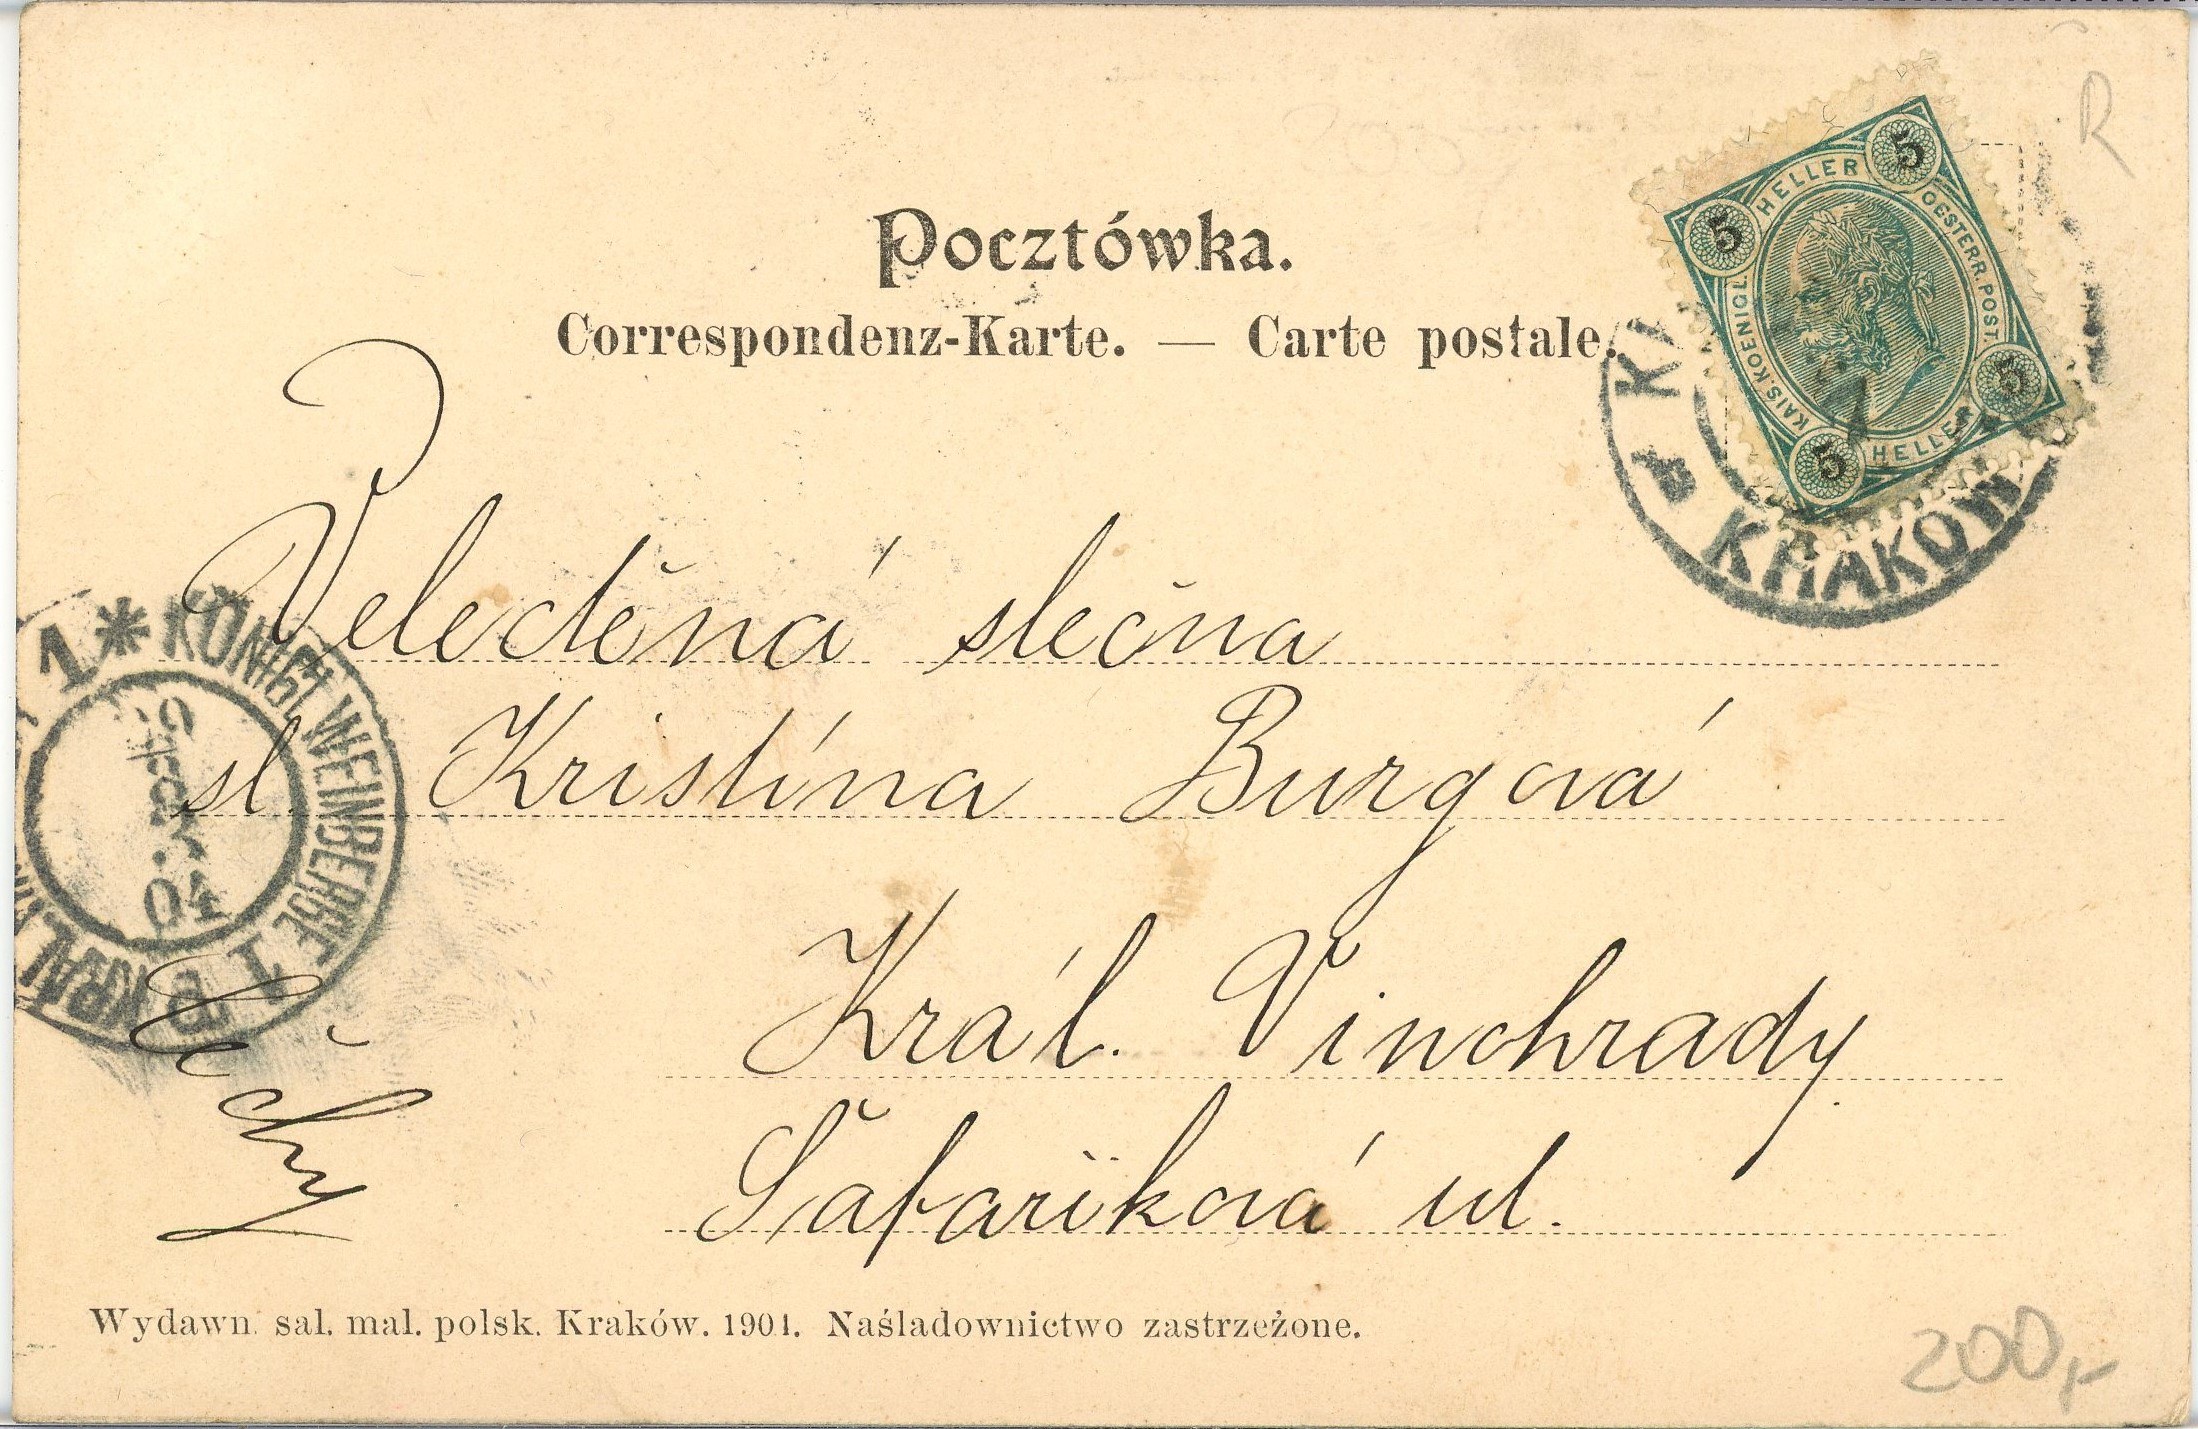 R
Pocztówka.
Correspondenz-Karte. — Carte postale.
5 HELLER 5
KAIS. KOENIGL. OESTERR. POST.
5 HELLER 5
KRAKÓW
Veledĕná slečna
sl. Kristína Burgová
Král. Vinohrady
Šafaříková ul.
Čechy
1 * KÖNIGL WEINBERGE 1 KRÁL.
Wydawn. sal. mal. polsk. Kraków. 1901. Naśladownictwo zastrzeżone.
200,-